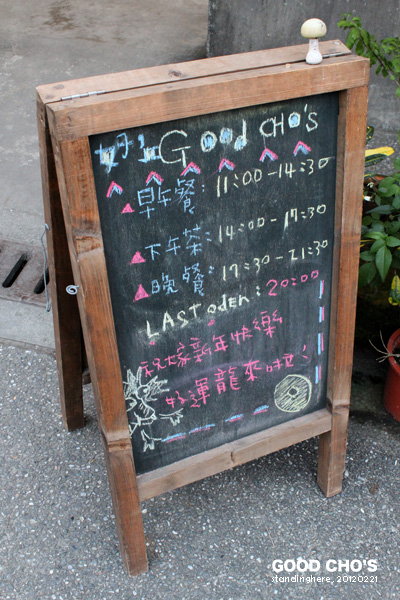 好 GOOD CHO'S
早午餐：11:00-14:30
下午茶：14:00-17:30
晚餐：17:30-21:30
LAST ODER：20:00
祝大家新年快樂
好運龍來啦！
GOOD CHO'S
standinghere, 20120221